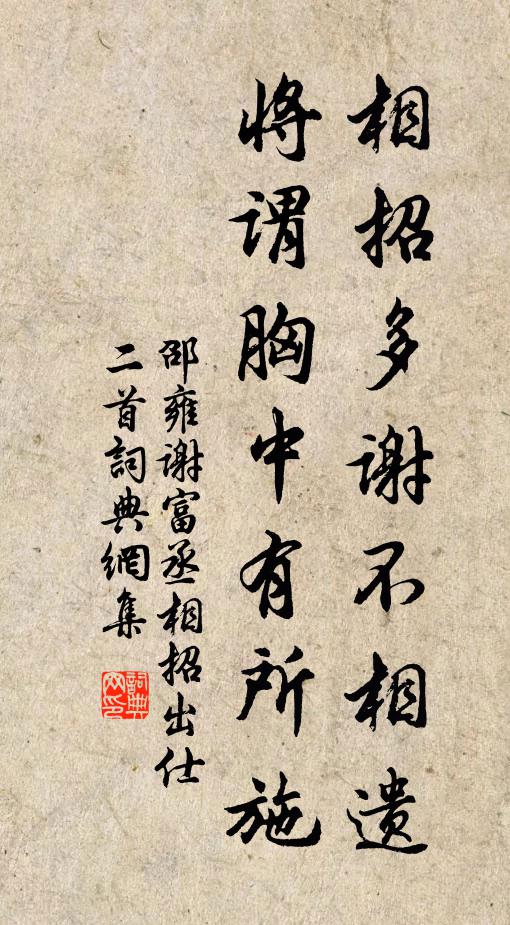 相招多谢不相遗
将谓胸中有所施
邵雍谢富丞相招出仕
二首詞典網集
詞典网印